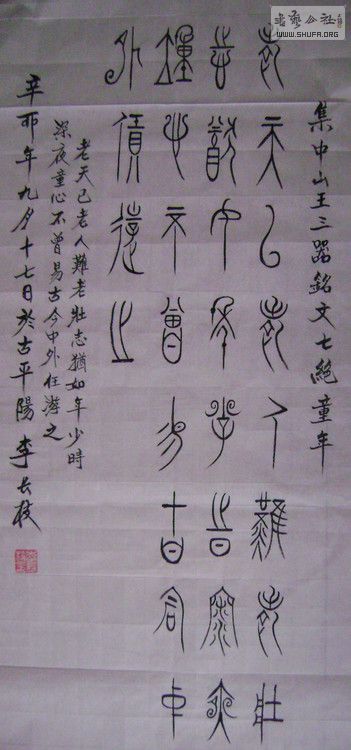 書藝公社
WWW.SHUFA.ORG
集中山王三器銘文七絕童年
老天已老人難老壯
志猶如年少時深夜
童心不曾易古今中
外任遊之
老天已老人難老壯志猶如年少時
深夜童心不曾易古今中外任游之
辛卯年九月十七日於古平陽 李长枝